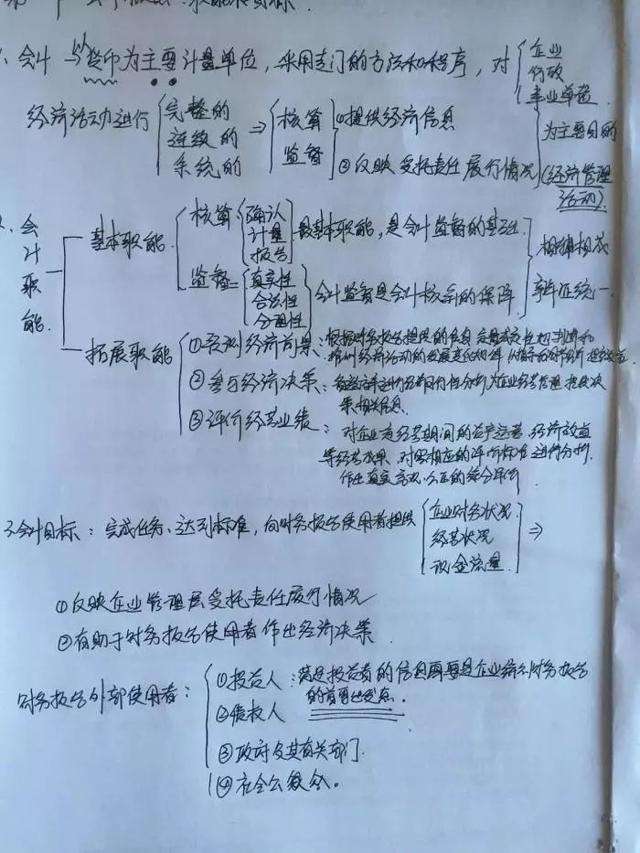 1、会计 以货币为主要计量单位，采用专门的方法和程序，对
企业
行政
事业单位
经济活动进行
完整的
连续的
系统的
⇒
核算
监督
①提供经济信息
②反映受托责任履行情况
为主要目的
(经济管理
活动)
2、会计职能
基本职能
核算
确认
计量
报告
最基本职能，是会计监督的基础.
监督
真实性
合法性
合理性
会计监督是会计核算的保障
相辅相成
辩证统一.
拓展职能
①预测经济前景：根据财务报告提供的信息
②参与经济决策：
决策相关信息.
③评价经营业绩：
对企业 经营期间的资产运营、经济效益
等经营成果，对照相应的评价标准进行分析，
作出真实、客观、公正的综合评价
3.会计目标：完成任务、达到标准，向财务报告使用者提供
企业财务状况
经营状况
现金流量.
⇒
①反映企业管理层受托责任履行情况
②有助于财务报告使用者作出经济决策.
财务报告外部使用者：
①投资人：满足投资者的信息需要是企业编制财务报告
的首要出发点.
②债权人
③政府及其有关部门.
④社会公众.